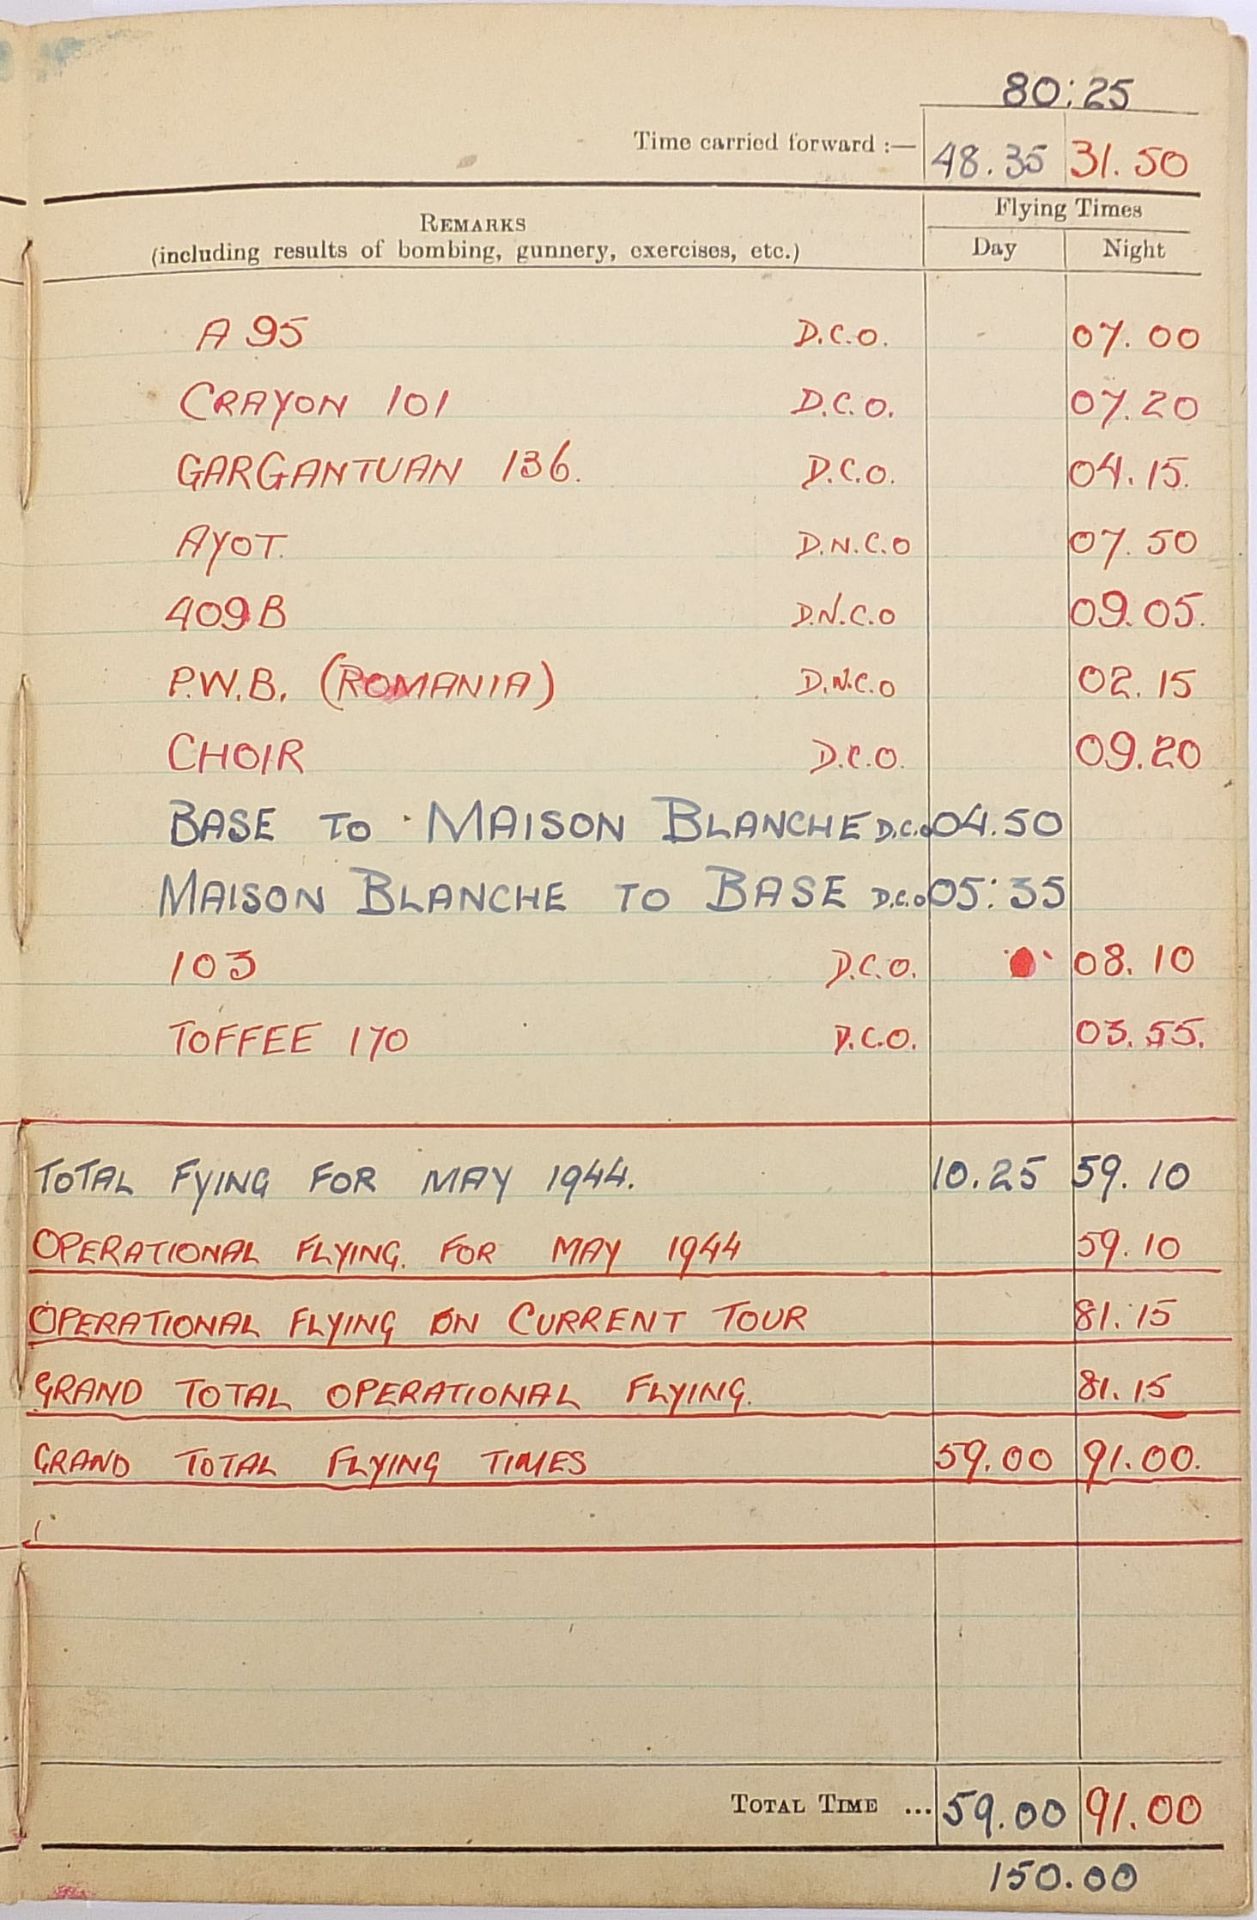 80:25
Time carried forward :— 48.35 31.50
REMARKS
(including results of bombing, gunnery, exercises, etc.)
Flying Times
Day Night
A 95 D.C.O. 07.00
CRAYON 101 D.C.O. 07.20
GARGANTUAN 136. D.C.O. 04.15.
AYOT. D.N.C.O 07.50
409B D.N.C.O 09.05.
P.W.B. (ROMANIA) D.N.C.O 02.15
CHOIR D.C.O. 09.20
BASE TO MAISON BLANCHE D.C.O 04.50
MAISON BLANCHE TO BASE D.C.O 05:35
103 D.C.O. 08.10
TOFFEE 170 D.C.O. 03.55.
TOTAL FYING FOR MAY 1944. 10.25 59.10
OPERATIONAL FLYING. FOR MAY 1944 59.10
OPERATIONAL FLYING ON CURRENT TOUR 81.15
GRAND TOTAL OPERATIONAL FLYING. 81.15
GRAND TOTAL FLYING TIMES 59.00 91.00.
TOTAL TIME ... 59.00 91.00
150.00